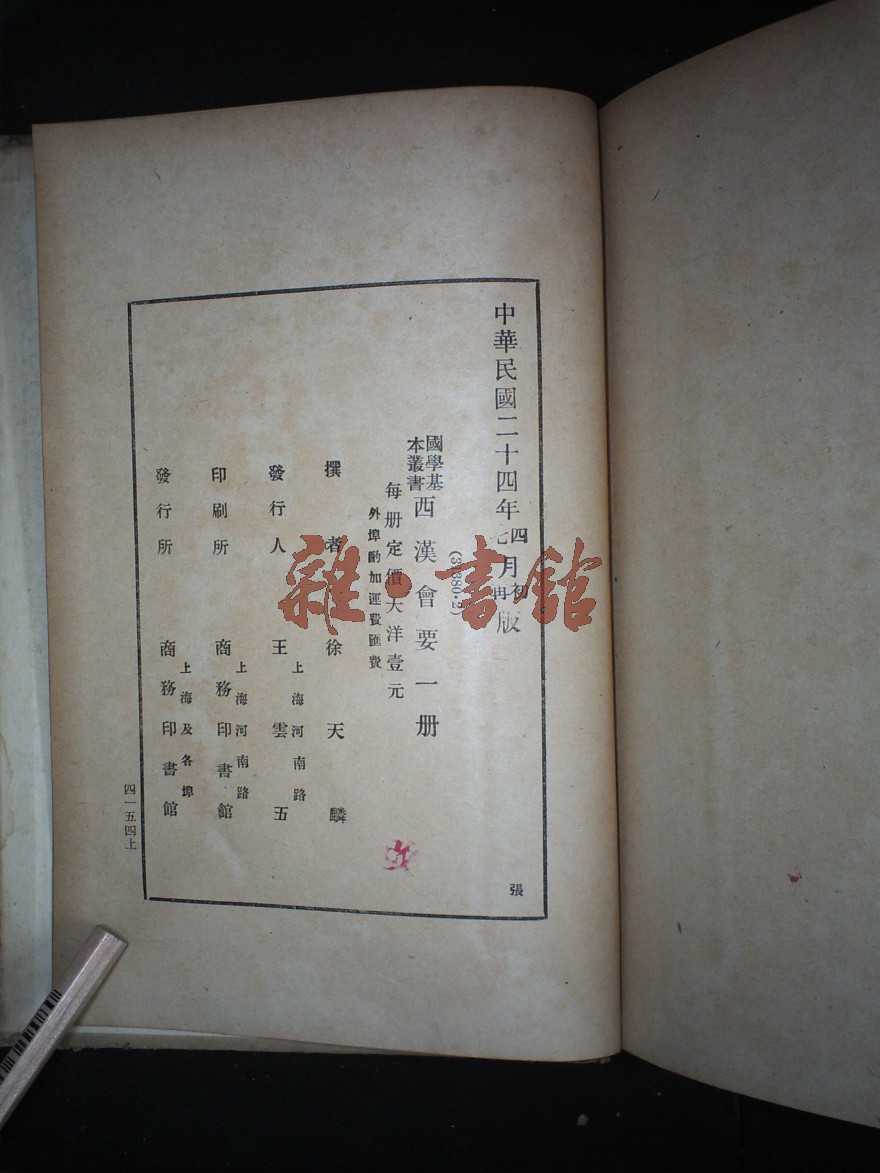 中華民國二十四年四月初版
七月再版
國學基本叢書
西漢會要一册
每册定價大洋壹元
外埠酌加運費匯費
撰者 徐天麟
發行人 王雲五
上海河南路
印刷所 商務印書館
上海河南路
發行所 商務印書館
上海及各埠
四一五四上
張
雜·書館